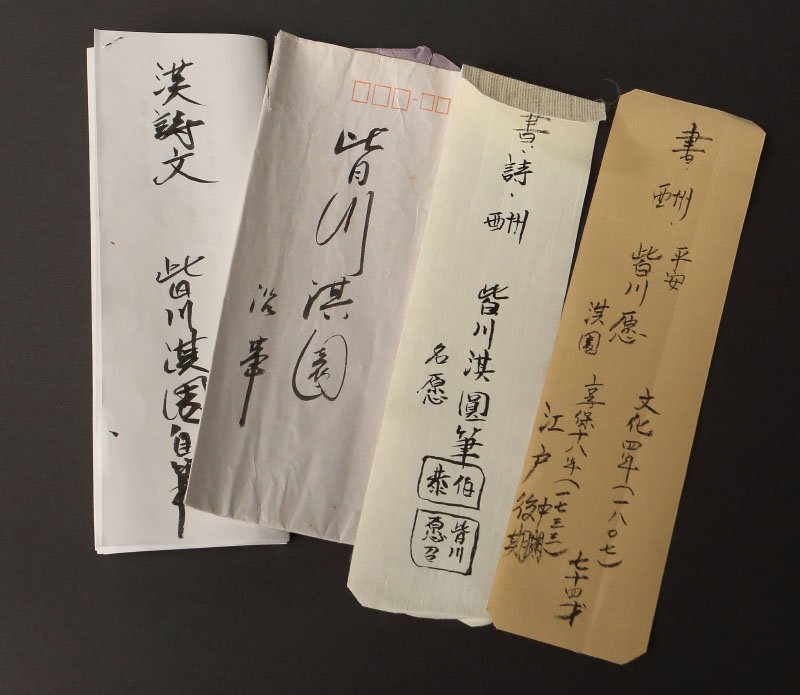 漢詩文 皆川淇園自筆
皆川淇園
書・詩・酬 皆川淇圓筆
名愿
伯恭
皆川愿
書・酬・
平安
皆川愿
淇園
文化四年(一八〇七)
享保十八年(一七三三)
七十四才
江戸中期
後期